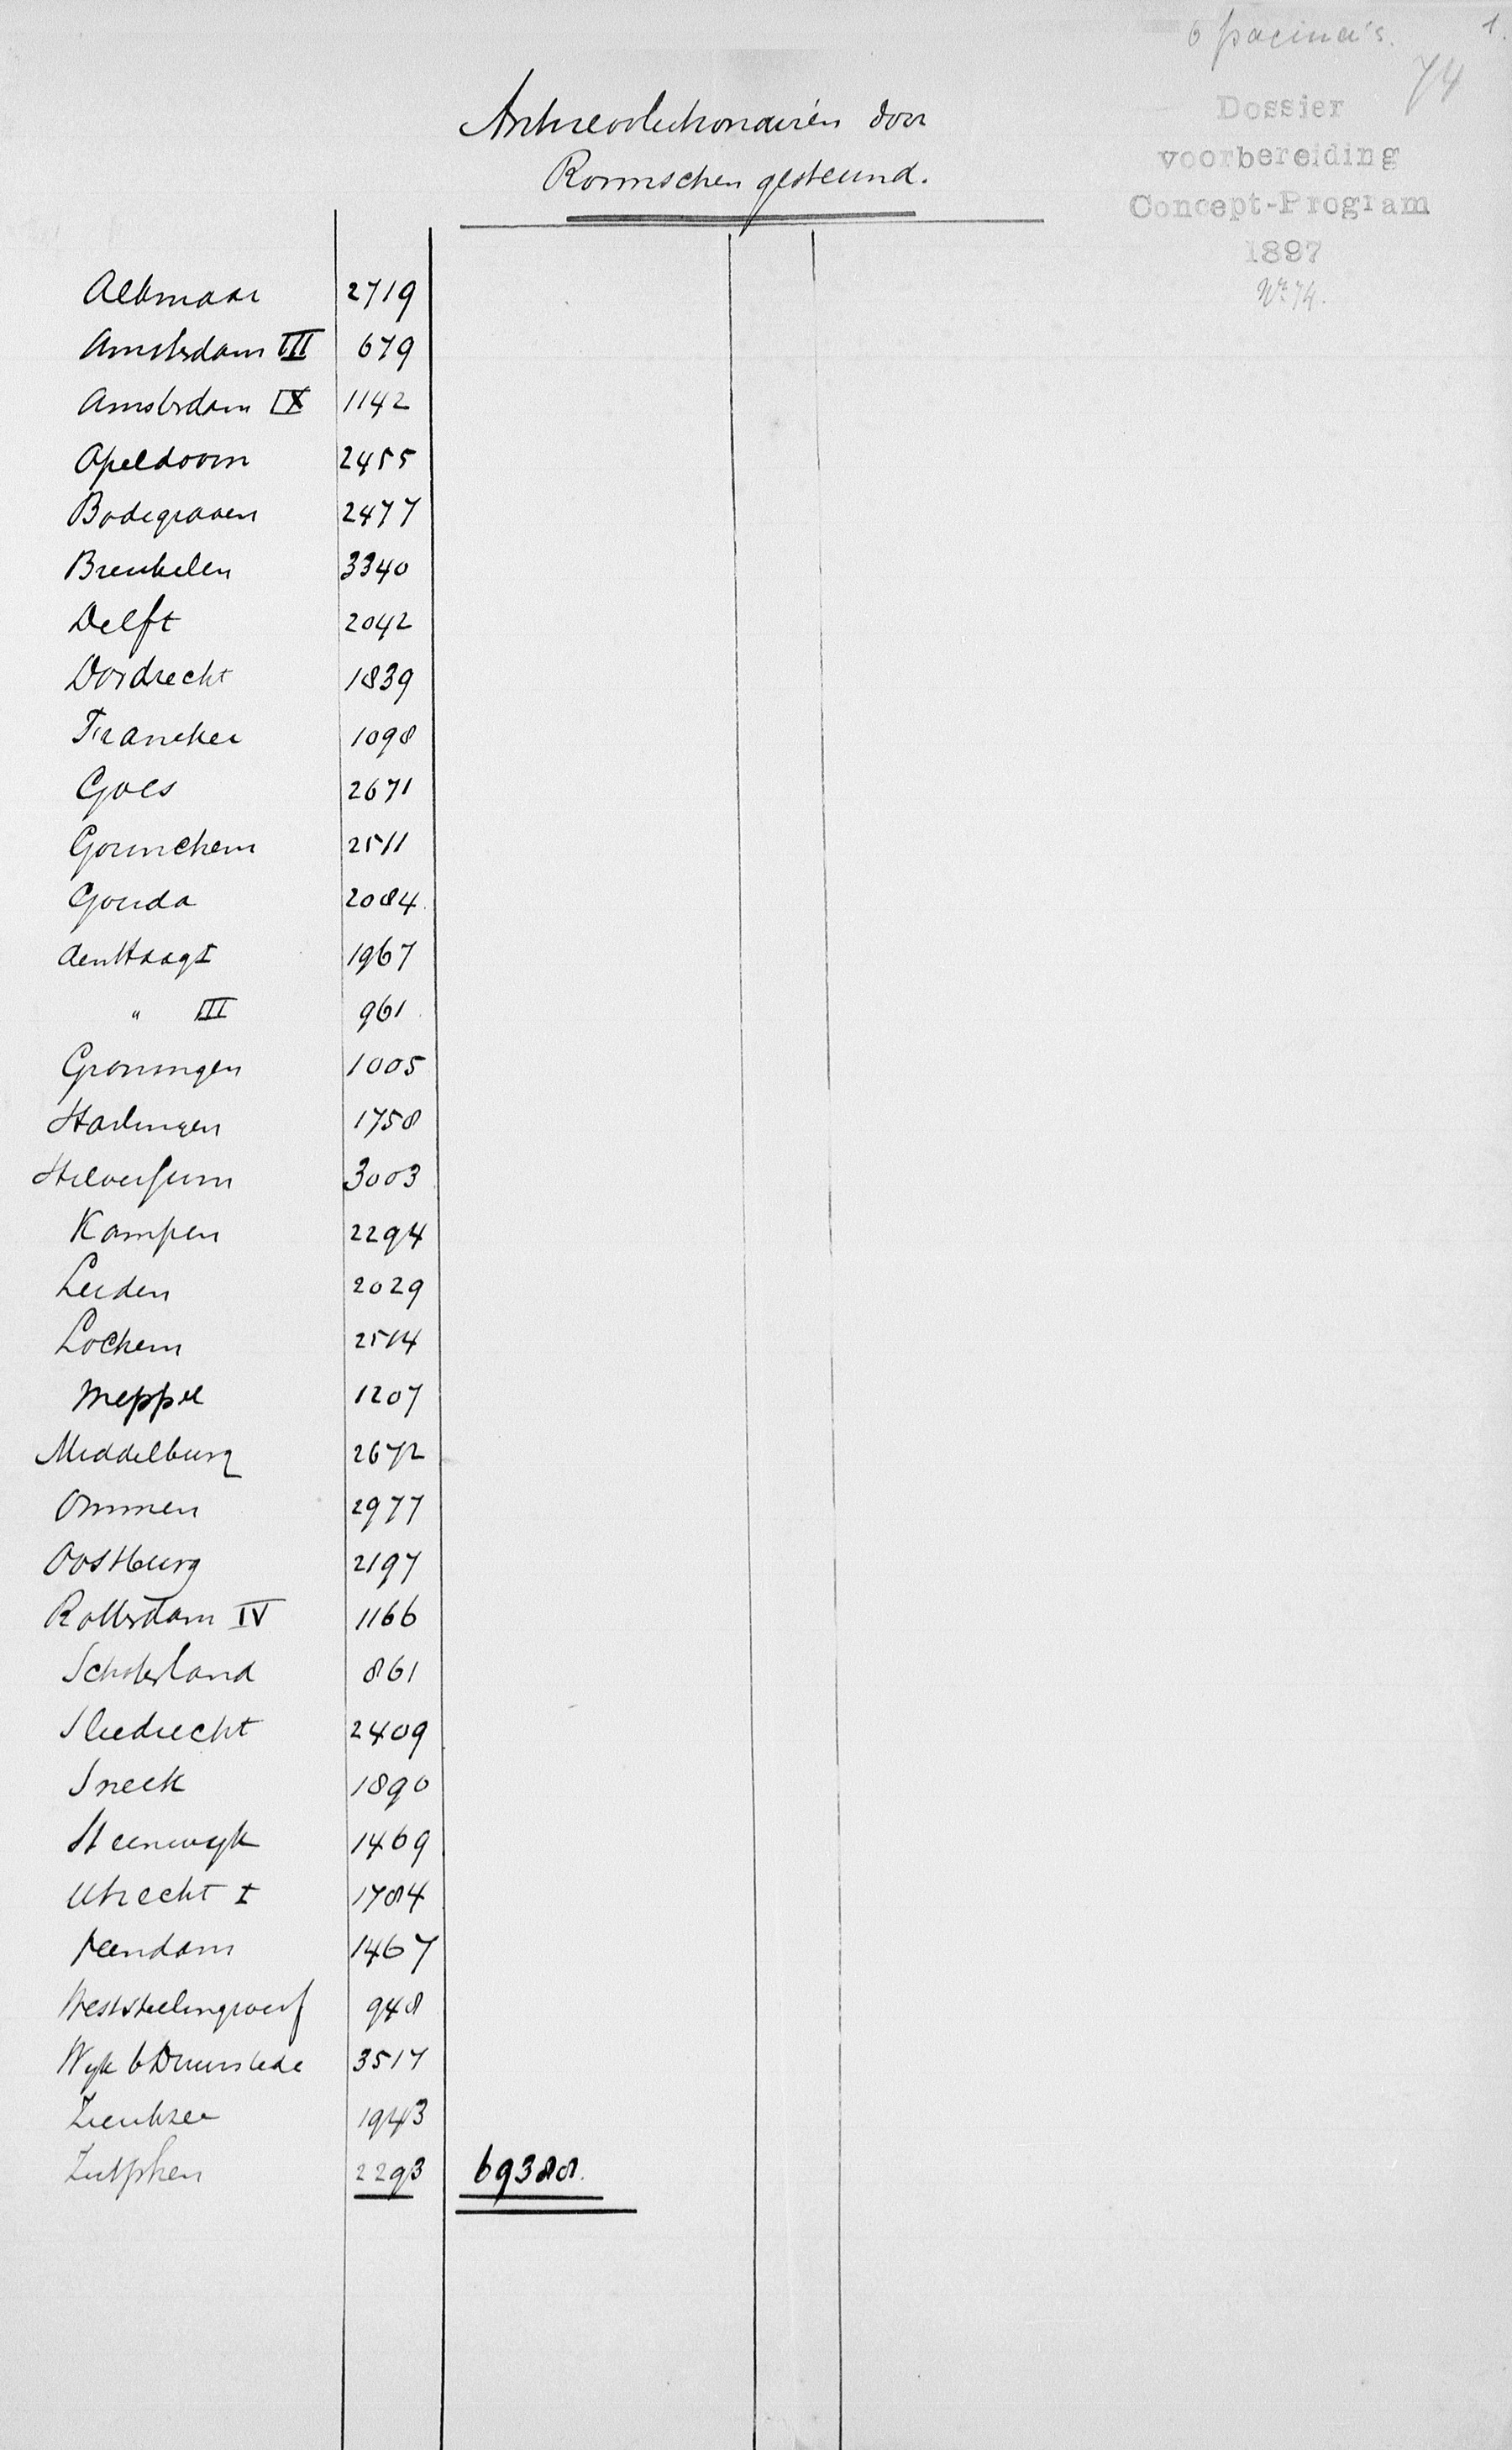 6 pagina's. 1.
74
Dossier
voorbereiding
Concept-Program
1897
No 74.
Antirevolutionairen door
Roomschen gesteund.
Alkmaar 2719
Amsterdam III 679
Amsterdam IX 1142
Apeldoorn 2455
Bodegraven 2477
Breukelen 3340
Delft 2042
Dordrecht 1839
Franeker 1098
Goes 2671
Gorinchem 2511
Gouda 2084
den Haag I 1967
" III 961
Groningen 1005
Harlingen 1758
Hilversum 3003
Kampen 2294
Leiden 2029
Lochem 2514
Meppel 1207
Middelburg 2672
Ommen 2977
Oostburg 2197
Rotterdam IV 1166
Schoterland 861
Sliedrecht 2409
Sneek 1890
Steenwyk 1469
Utrecht I 1784
Veendam 1467
Weststellingwerf 948
Wyk b Duurstede 3517
Zierikzee 1943
Zutphen 2293 69388.